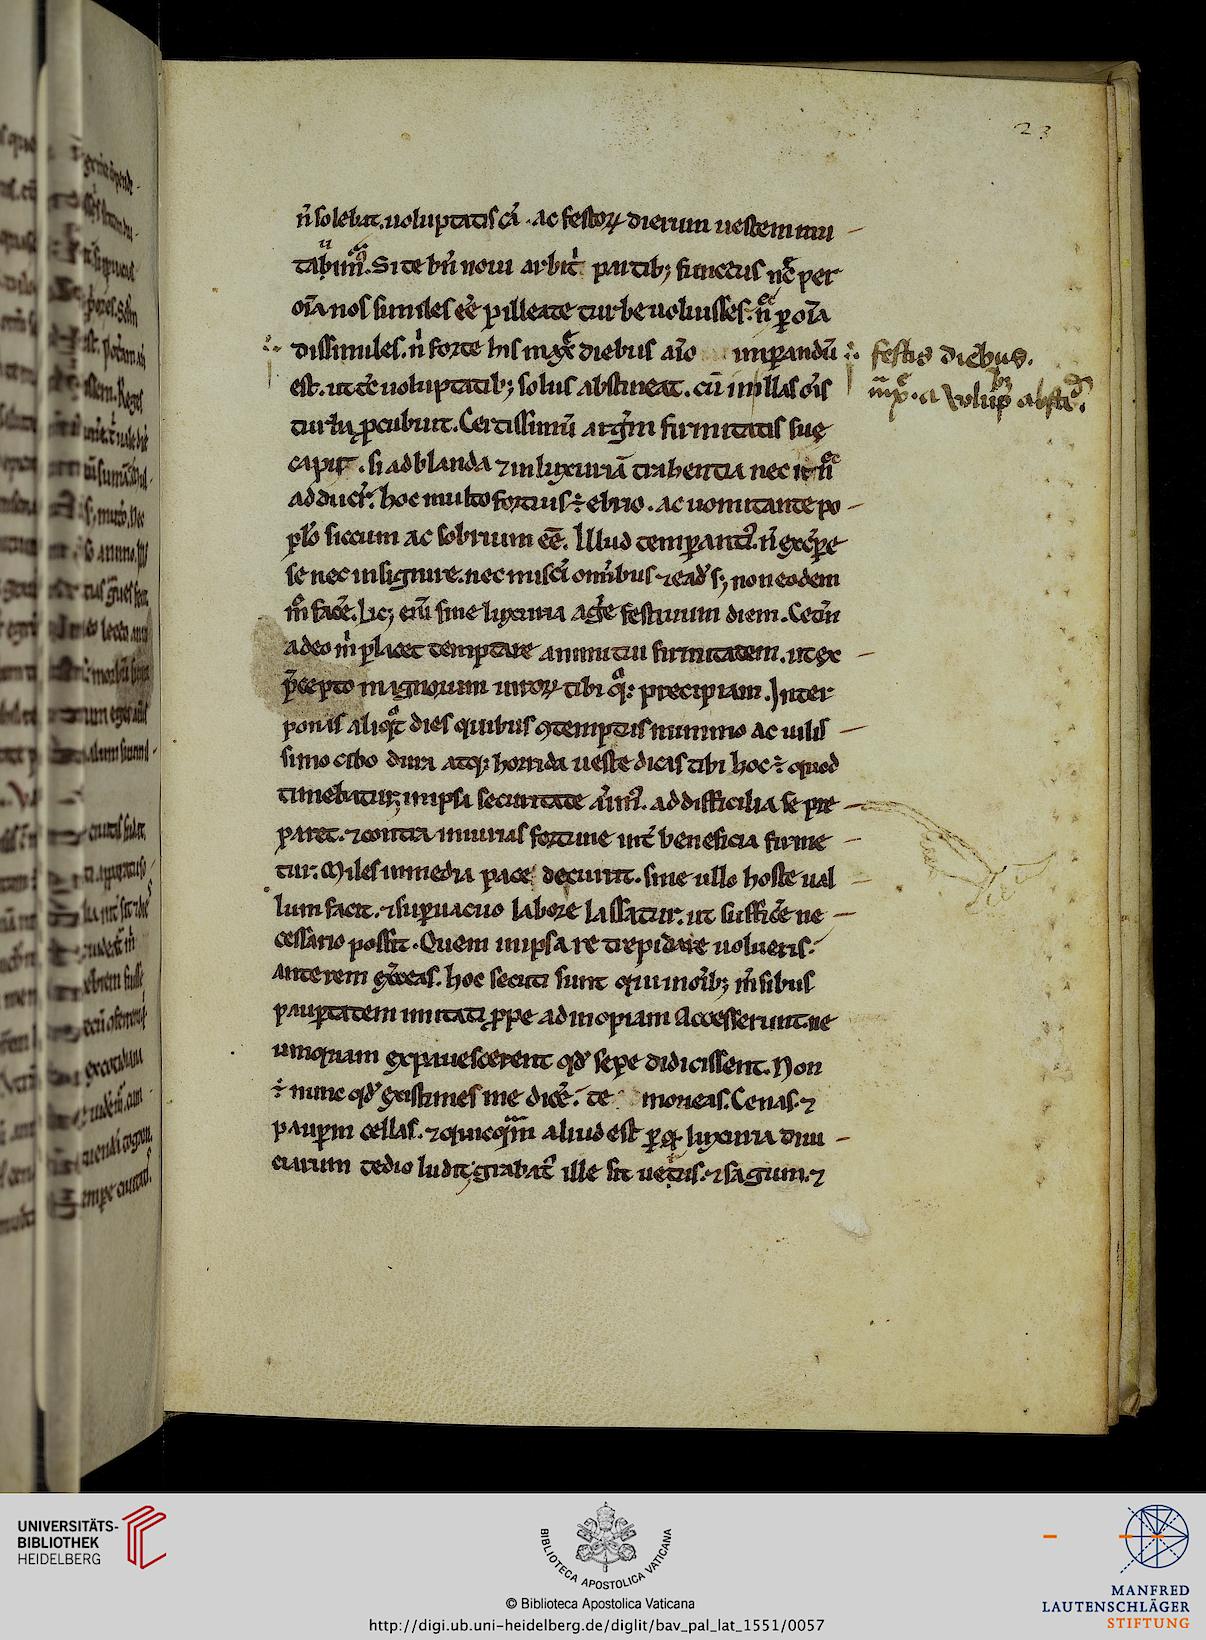 23
n̄ solebat. uoluptatis cā · ac festoꝝ dierum uestem mu
tabimꝰ. Si te bn̄ noui arbitͥ partibꝫ functus nc̄ per
oīa nos similes eē pilleate turbe uoluisses. n̄ ꝑ oīa
dissimiles. nͥ forte his maxͤ diebus aīo imꝑandū
est. ut tc̄ uoluptatibꝫ solus abstineat. cū in illas oīs
turba ꝓcubuit. Certissimū argm̄ firmitatis suę
capit. si ad blanda ⁊ in luxuriā trahentia nec it
adducit᷑. hoc multo fortius ÷ ebrio. ac uomitante po
pl̄o siccum ac sobrium eē. Illud temperantꝰ. n̄ exciꝑe
se nec insignire. nec misceri omībus ⁊ eadē sꝫ non eodem
mō facē. Licꝫ enī sine luxuria agē festiuum diem. Cetꝰm
adeo mͥ placet temptare animi tui firmitatem. ut ex
p̄cepto magnorum uiroꝝ tibi qͦꝫ precipiam. Inter
ponas aliqͦt dies quibus ꝯtemptus minimo ac uilis
simo cibo dura atqꝫ horrida ueste dicas tibi hoc ÷ quod
timebatur; in ipsa securitate aīmꝰ. ad difficilia se pre
paret. ⁊ contra iniurias fortune int̄ beneficia firme
tur. Miles in media pace decurrit. sine ullo hoste ual
lum facit. ⁊ suꝑuacuo labore lassatur. ut sufficē ne
cessario possit. Quem in ipsa re trepidare nolueris.
ante rem exceas. hoc secuti sunt qui in oībꝫ m̄sibus
pauꝑtatem imitati ꝓpe ad inopiam accesserunt. ne
umquam expauescerent qd̓ sepe didicissent. Non
÷ nunc qd̓ existimes me dicē. te moneas. Cenas. ⁊
pauꝑm cellas. ⁊ quicqͣm aliud est ꝑ qͦ luxuria diui
ciarum tedio ludit; grabatꝰ ille sit uetus. ⁊ sagum. ⁊
festis diebus.
UNIVERSITÄTS-
BIBLIOTHEK
HEIDELBERG
BIBLIOTECA APOSTOLICA VATICANA
© Biblioteca Apostolica Vaticana
http://digi.ub.uni-heidelberg.de/diglit/bav_pal_lat_1551/0057
MANFRED
LAUTENSCHLÄGER
STIFTUNG